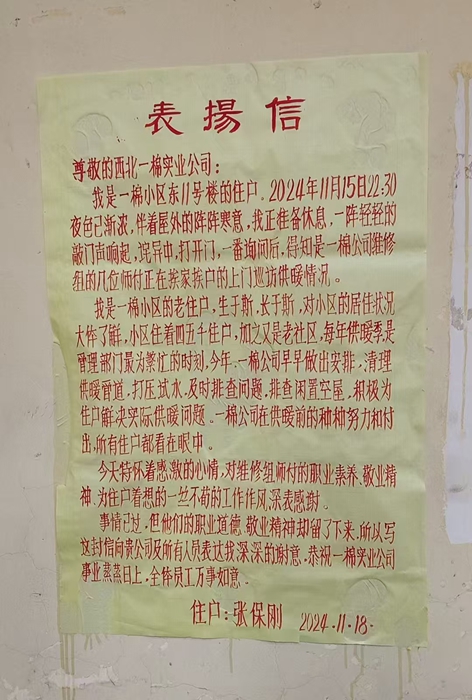 表揚信
尊敬的西北一棉实业公司：
我是一棉小区东11号楼的住户。2024年11月15日22:30
夜色已渐浓，伴着屋外的阵阵寒意，我正准备休息，一阵轻轻的
敲门声响起，诧异中，打开门，一番询问后，得知是一棉公司维修
组的几位师付正在挨家挨户的上门巡访供暖情况。
我是一棉小区的老住户，生于斯，长于斯，对小区的居住状况
大体了解，小区住着四五千住户，加之又是老社区，每年供暖季是
管理部门最为繁忙的时刻，今年、一棉公司早早做出安排，清理
供暖管道，打压、试水、及时排查问题，排查闲置空屋，积极为
住户解决实际供暖问题。一棉公司在供暖前的种种努力和付
出，所有住户都看在眼中。
今天特怀着感激的心情，对维修组师付的职业素养、敬业精
神、为住户着想的一丝不苟的工作作风，深表感谢。
事情已过，但他们的职业道德、敬业精神却留了下来，所以写
这封信向贵公司及所有人员表达我深深的谢意，恭祝一棉实业公司
事业蒸蒸日上，全体员工万事如意。
住户：张保刚 2024.11.18.